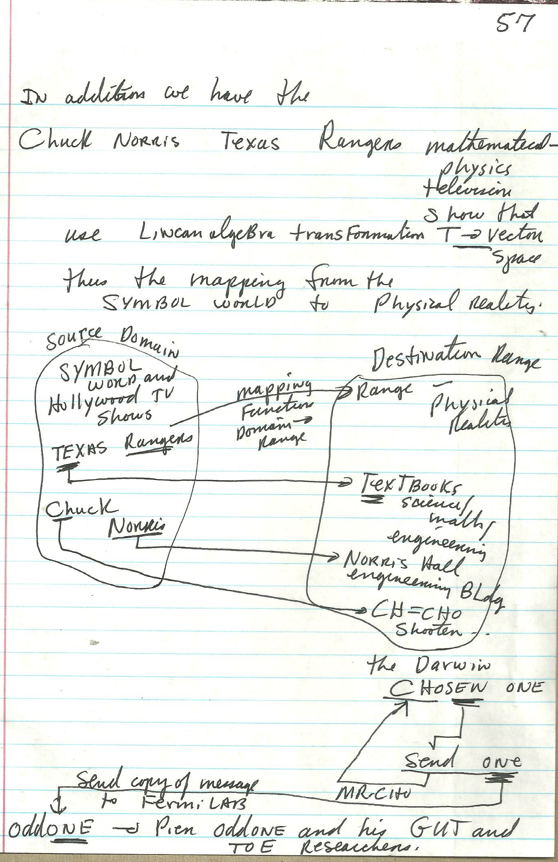 57
IN addition we have the
Chuck NORRIS TEXAS Rangers mathematical-
physics
television
show that
use Linear algeBra transFormation T → Vector
Space
thus the mapping from the
SYMBOL WORLD to Physical Reality.
Source Domain
SYMBOL
WORD and
Hollywood TV
Shows
TEXAS Rangers
Chuck
Norris
mapping
Function
Domain→
Range
Destination Range
Range —
Physical
Reality
TEXTBOOKS
science/
math/
engineering
NORRIS Hall
engineering BLdg
CH=CHO
Shooter -.
the Darwin
CHOSEN ONE
Send one
MR-CHO
Send copy of message
to Fermi LAB
oddONE → Pier OddONE and his GUT and
TOE Researchers.